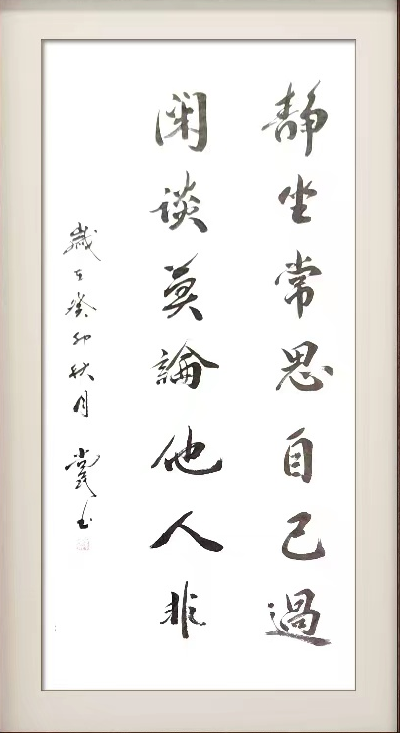 静坐常思自己過
闲谈莫論他人非
歲在癸卯秋月